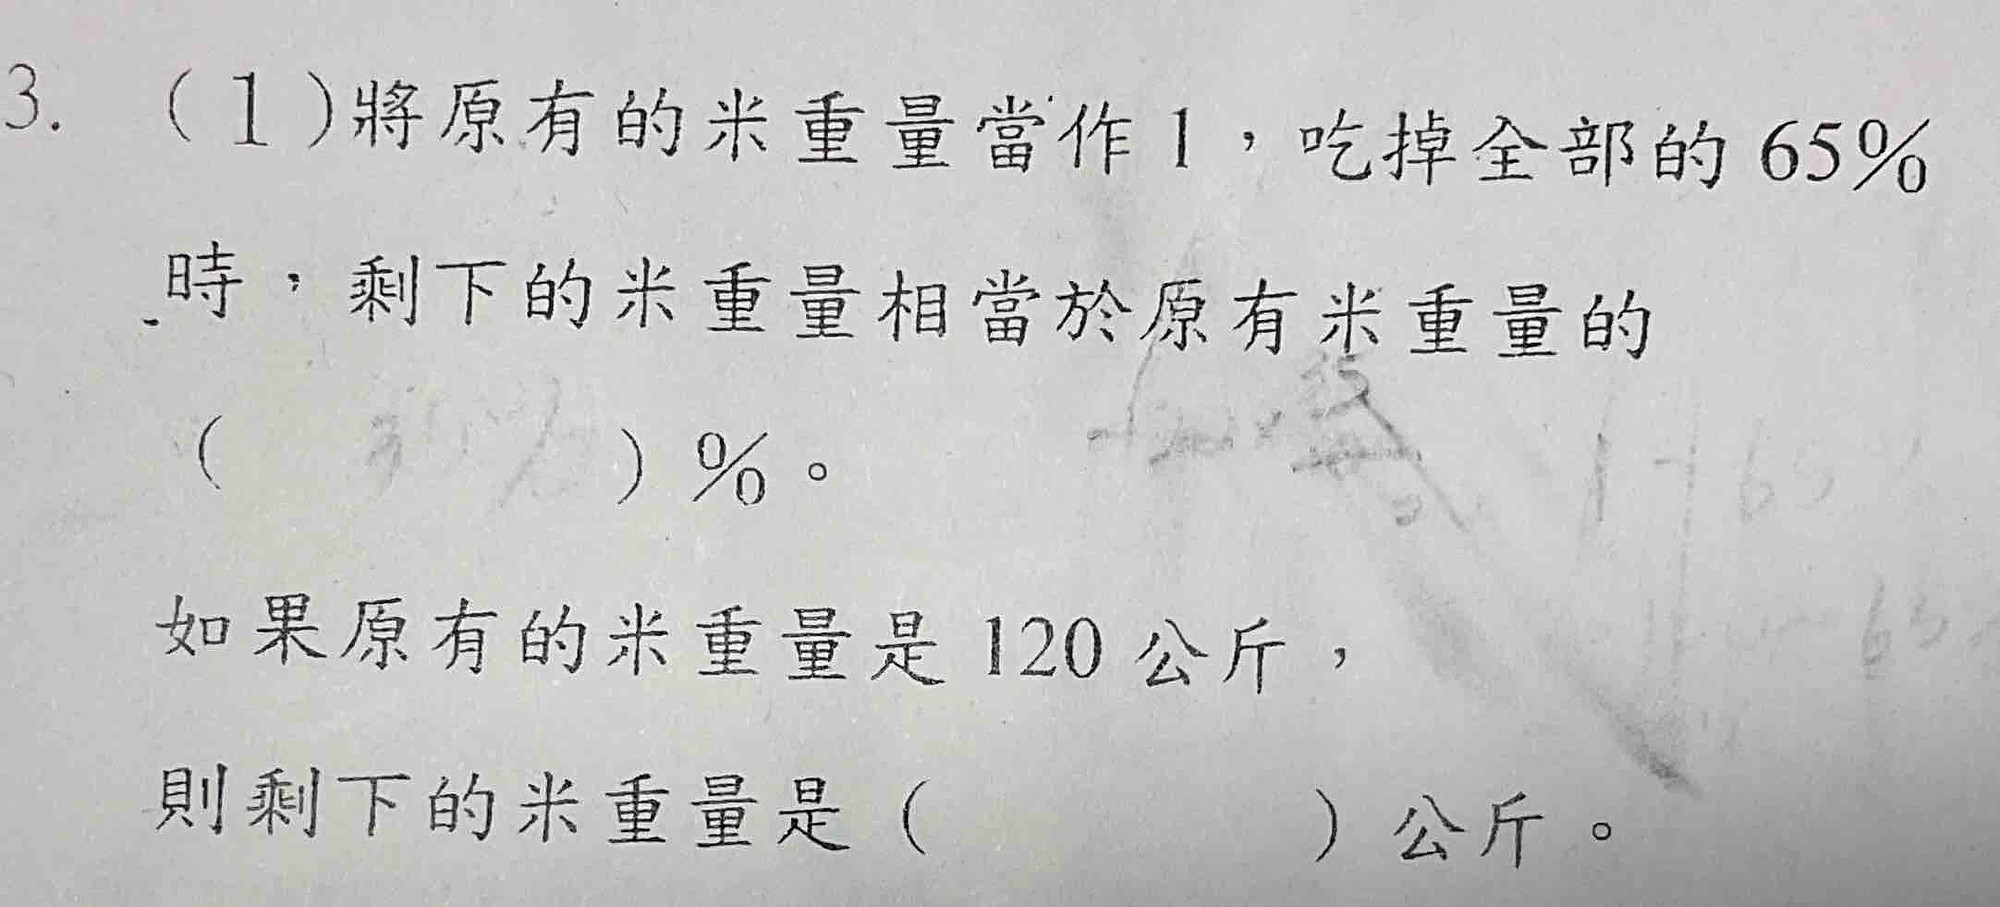 3. (1)將原有的米重量當作1，吃掉全部的65%
時，剩下的米重量相當於原有米重量的
(　　　) %。
如果原有的米重量是120公斤，
則剩下的米重量是(　　　)公斤。